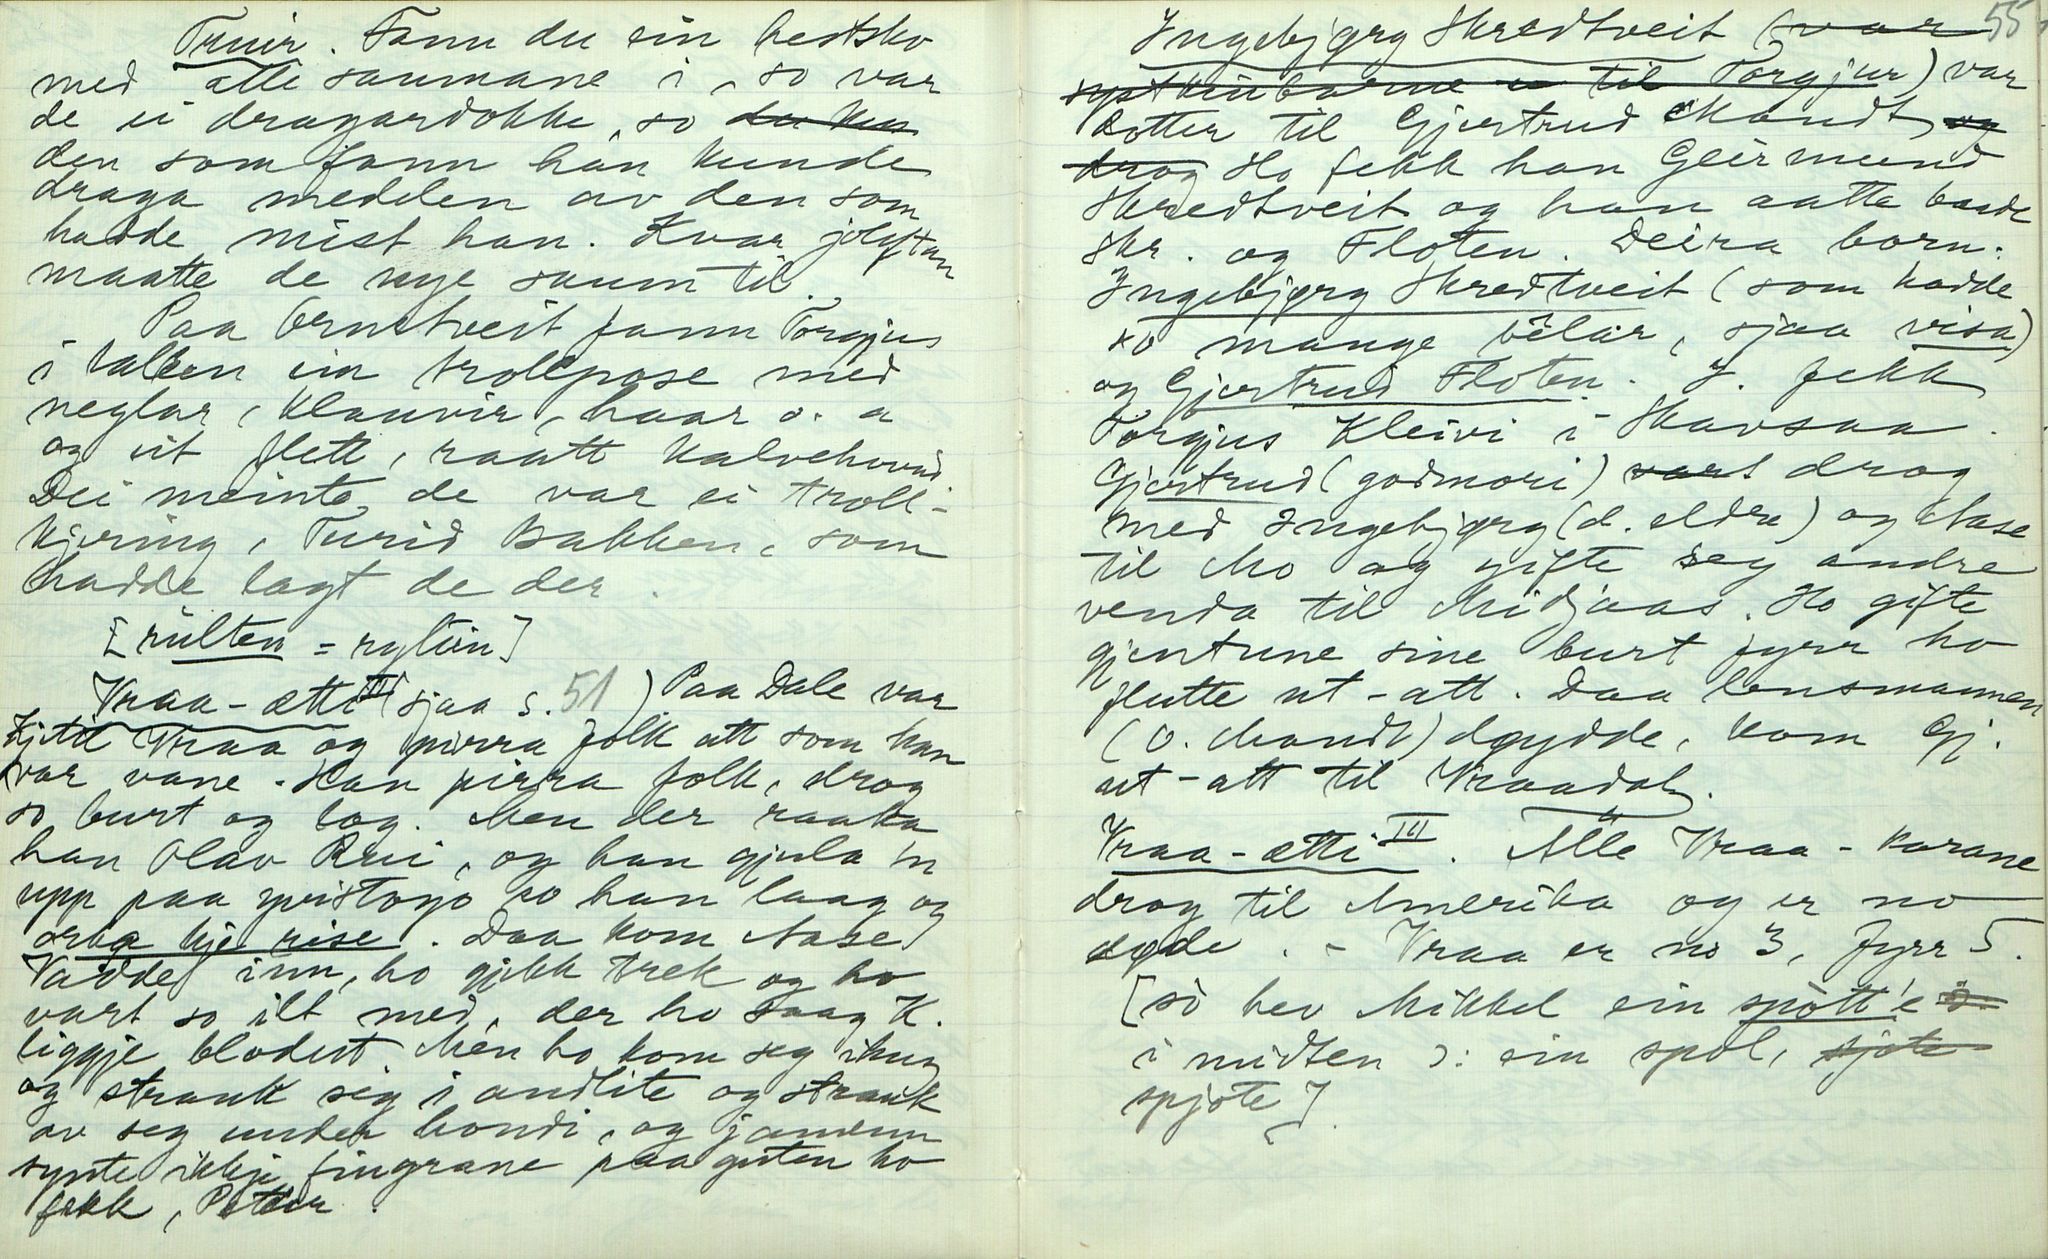 Truir. Fann du ein hestsko
med alle saumane i, so var
de ei dragardokke, so du kun
den som fann han kunde
draga medelen av den som
hadde mist han. Kvar joleftan
maatte de nye saum til.
Paa Ornstveit fann Torgjus
i laben ein trollpose med
neglar, klauvir, haar o. a
og eit flett, raatt kalvehovud.
Dei meinte de var ei troll-
kjering, Turid Bakken, som
hadde lagt de der.
[rülten = rytűn]
Vraa-ætti II (sjaa s. 51) Paa Dale var
Kjetil Vraa og pirra folk att som han
var vane. Han pirra folk, drog
so burt og log. Men der raaka
han Olav Rui, og han gjula 'n
upp paa yvistogo so han laag og
orka kje rise. Daa kom Aase
Vadde inn, ho gjekk trek og ho
vart so ilt med, der ho saag K.
liggje blodut. Men ho kom seg ihug
og strauk seg i andlite og strauk
av seg under hondi, og jamenn
synte ikkje fingrane paa guten ho
fekk, Petter.
55
Ingebjørg Skredtveit (var
systkinbarne til Torgjus) var
dotter til Gjertrud Mandt og
drog Ho fekk han Geirmund
Skredtveit og han aatte baade
Skr. og Floten. Deira born:
Ingebjørg Skredtveit (som hadde
so mange bêlar, sjaa visa)
og Gjertrud Floten. I. fekk
Torgjus Kleivi i Skavsaa.
Gjertrud (godmori) vart drog
med Ingebjørg (d. eldre) og Aase
til Mo og gifte seg andre
venda til Midjaas. Ho gifte
gjentune sine burt fyrr ho
flutte ut-att. Daa lensmannen
(O. Mandt) døydde, kom Gj.
ut-att til Vraadal.
Vraa-ætti III. Alle Vraa-karane
drog til Amerika og er no
døde. - Vraa er no 3, fyrr 5.
[sò hev Mikkel ein spött'e
i midten ɔ: ein spol, sjote
spjote].